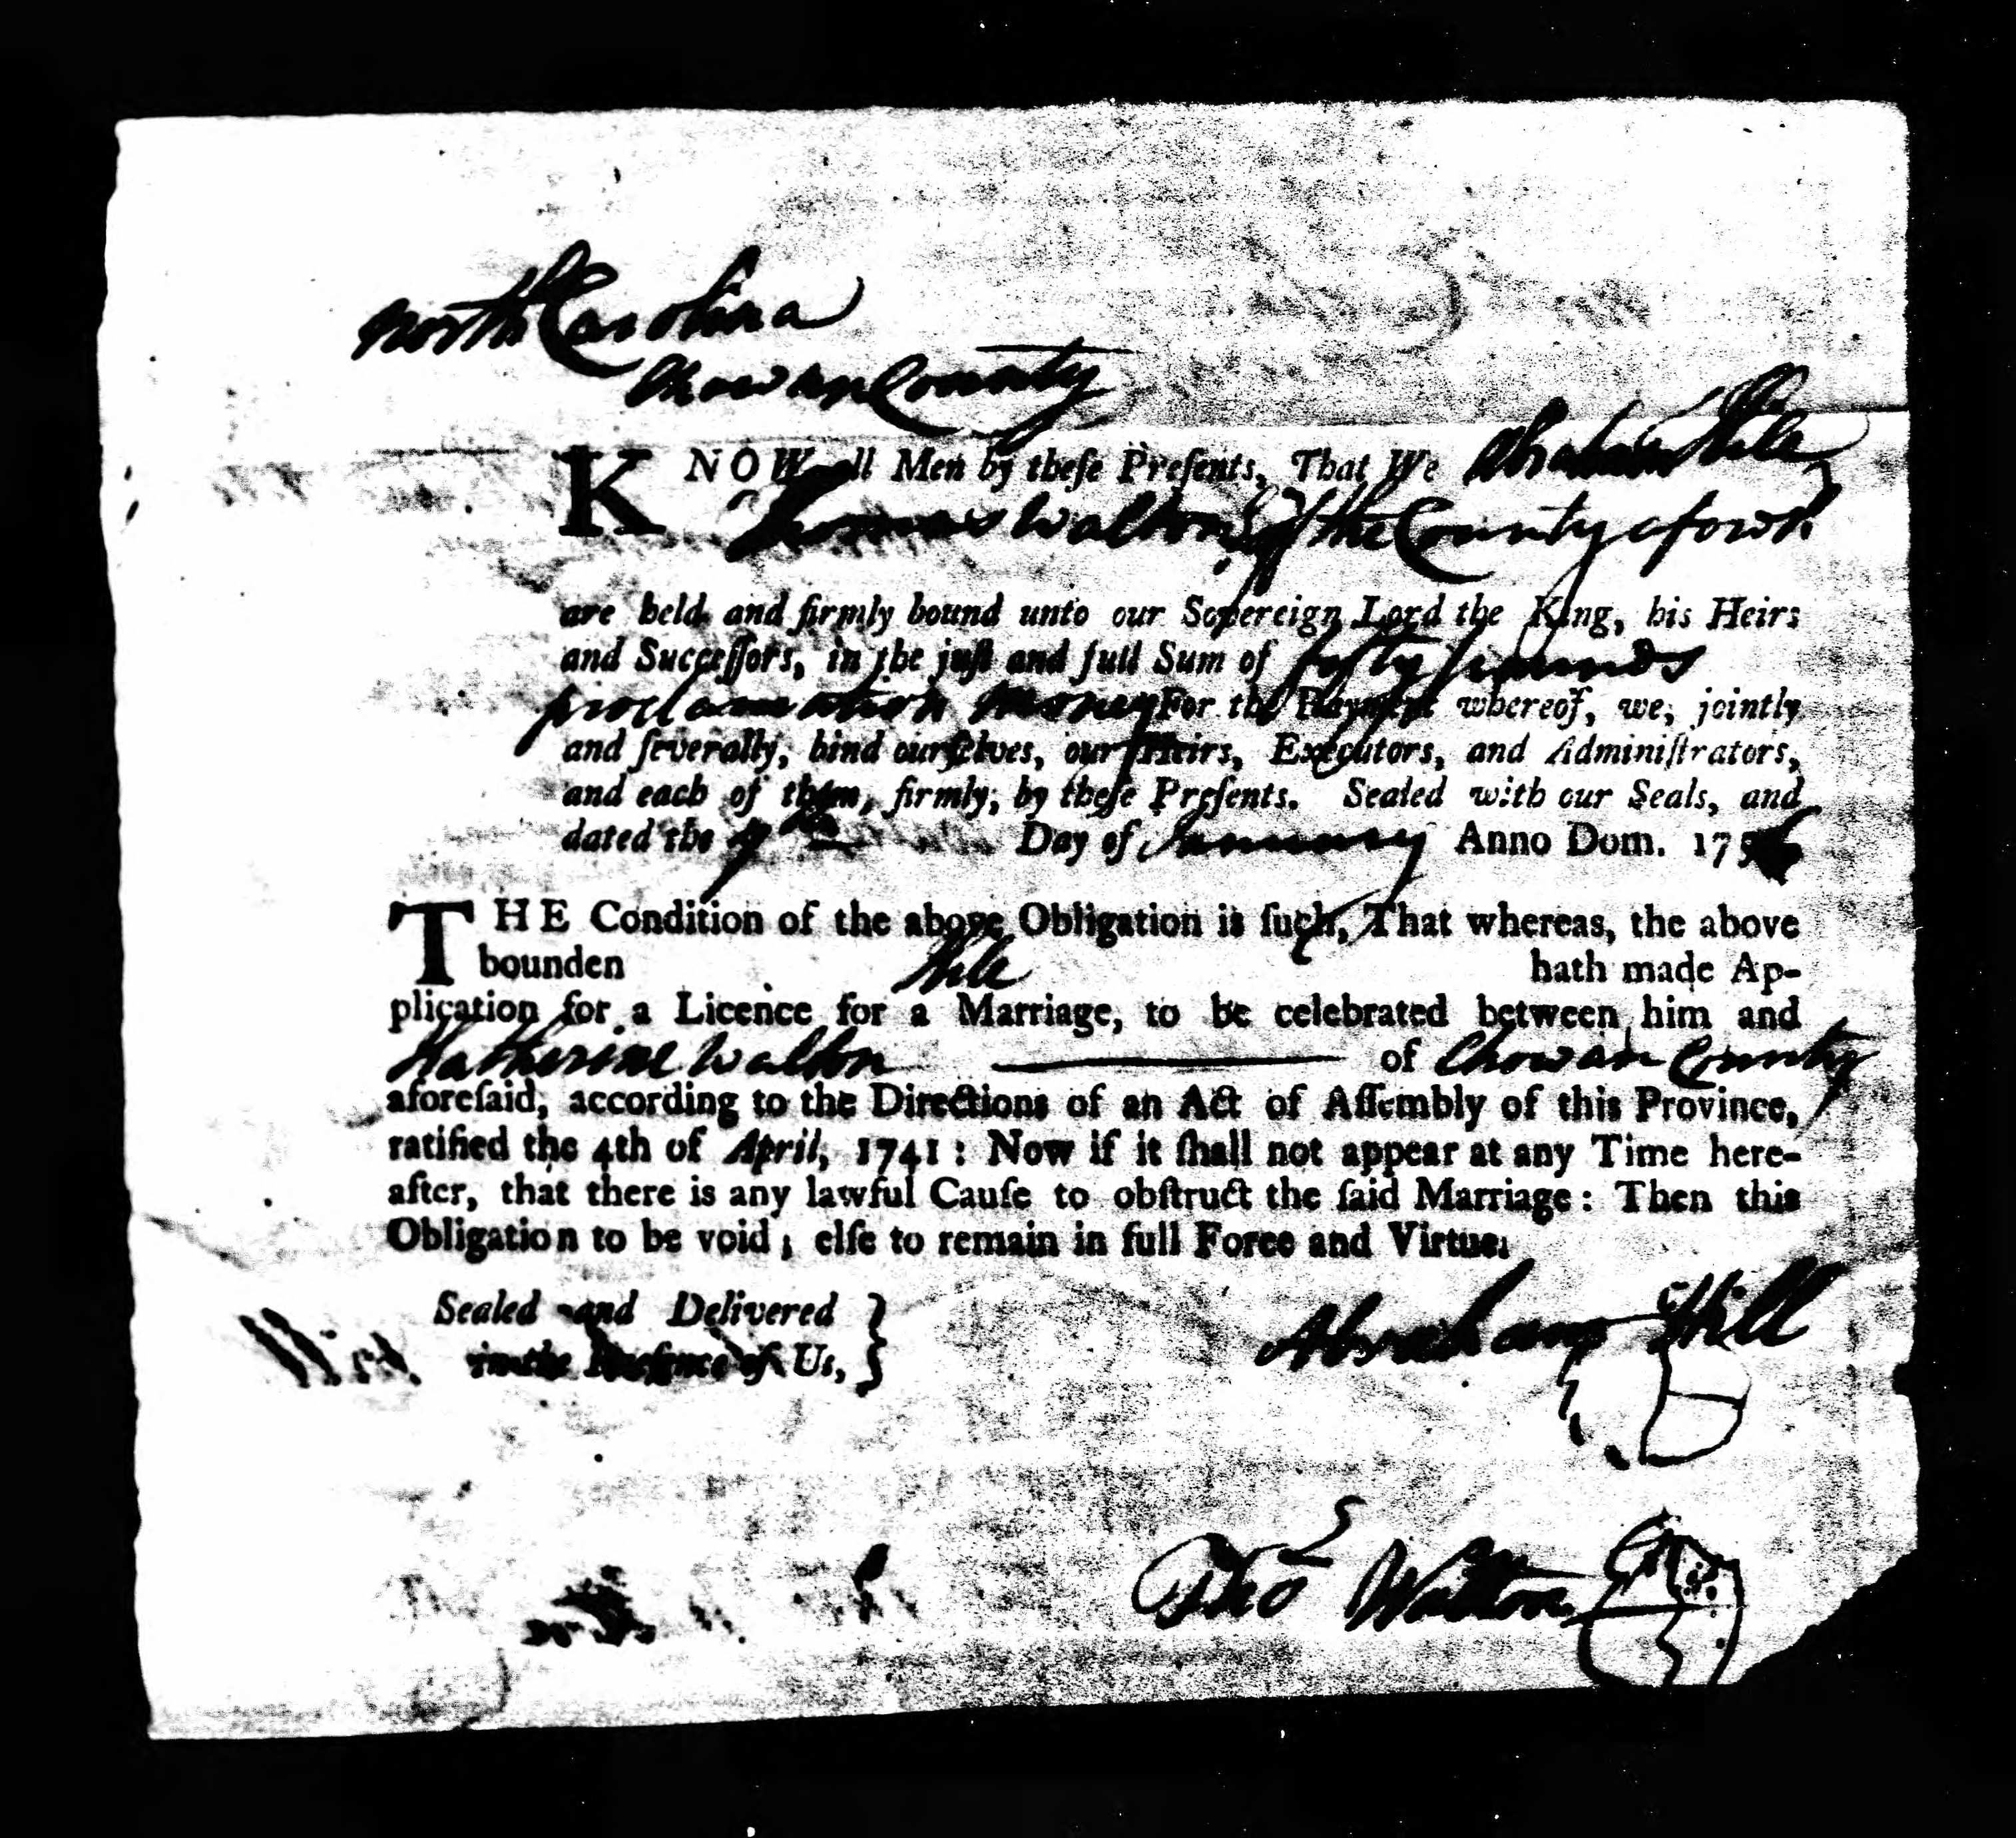 North Carolina
Chowan County
KNOW all Men by theſe Preſents, That We Abraham Hill
Thomas Walton of the County aforsd.
are held and firmly bound unto our Sovereign Lord the King, his Heirs
and Succeſſors, in the juſt and full Sum of fifty pounds
proclamation money For the Payment whereof, we, jointly
and ſeverally, bind ourſelves, our Heirs, Executors, and Adminiſtrators,
and each of them, firmly, by theſe Preſents. Sealed with our Seals, and
dated the 7th Day of January Anno Dom. 175
THE Condition of the above Obligation is ſuch, That whereas, the above
bounden Hill hath made Ap-
plication for a Licence for a Marriage, to be celebrated between him and
Katherine Walton of Chowan County
aforeſaid, according to the Directions of an Act of Aſſembly of this Province,
ratified the 4th of April, 1741: Now if it ſhall not appear at any Time here-
after, that there is any lawful Cauſe to obſtruct the ſaid Marriage: Then this
Obligation to be void; elſe to remain in full Force and Virtue.
Sealed and Delivered
in the Preſence of Us,
Abraham Hill
Thos Walton